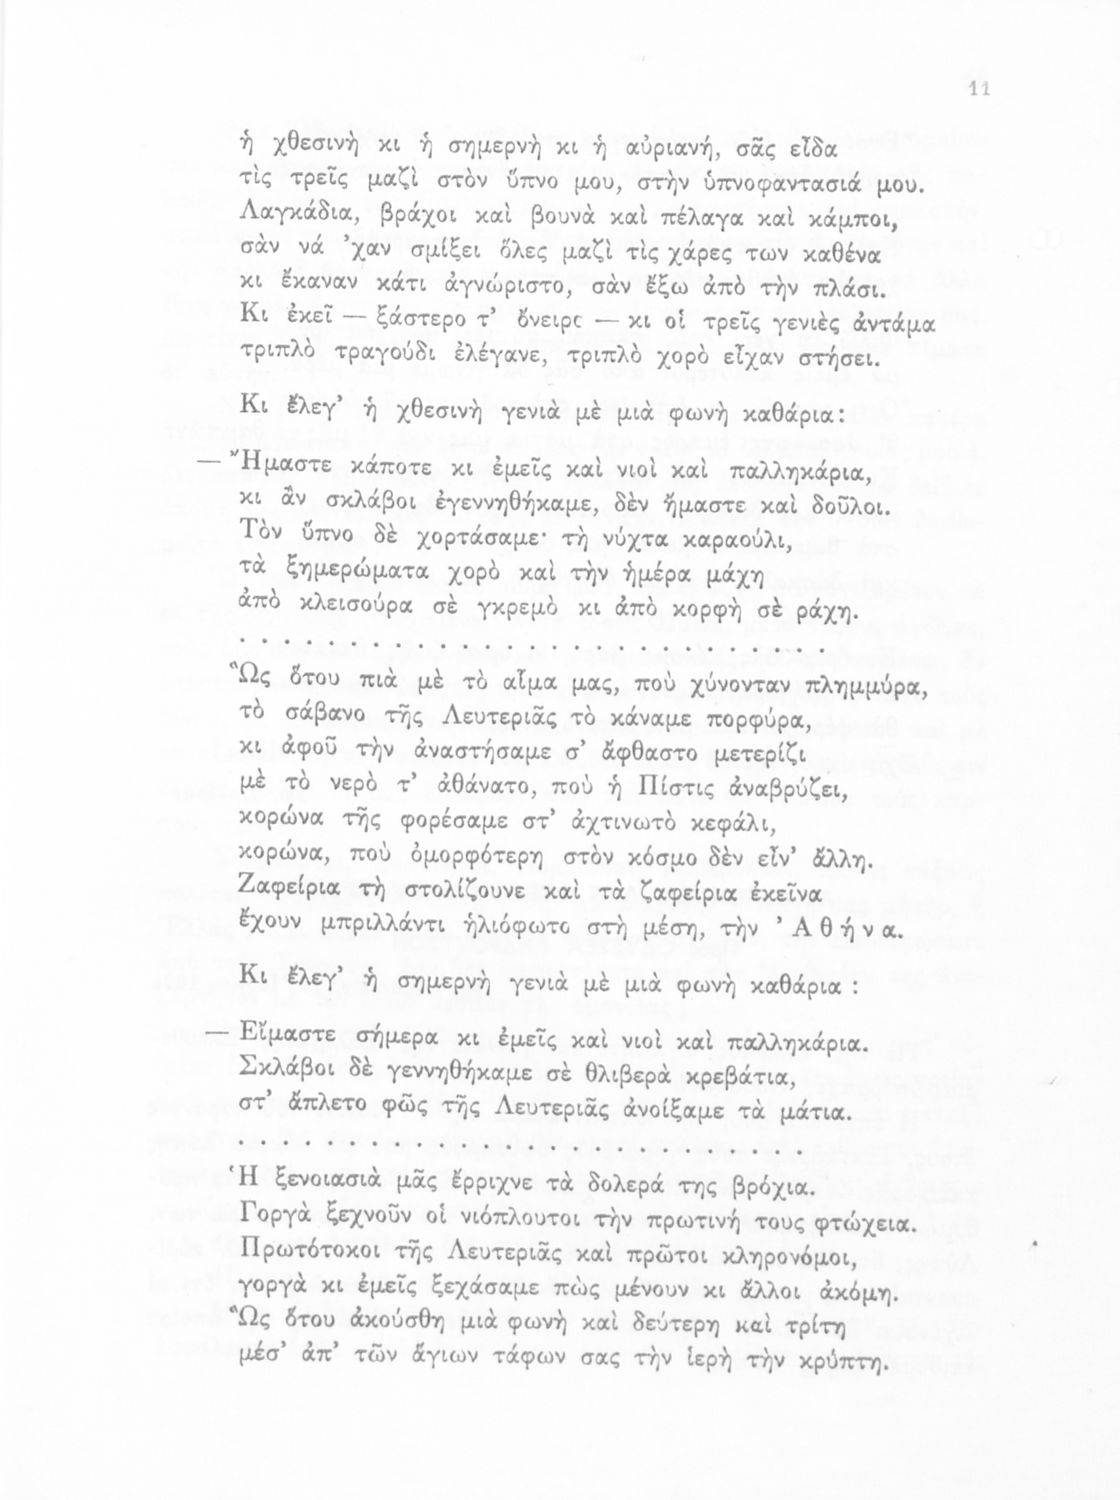 11
ἡ χθεσινὴ κι ἡ σημερνὴ κι ἡ αὐριανή, σᾶς εἶδα
τὶς τρεῖς μαζὶ στὸν ὕπνο μου, στὴν ὑπνοφαντασιά μου.
Λαγκάδια, βράχοι καὶ βουνὰ καὶ πέλαγα καὶ κάμποι,
σὰν νά 'χαν σμίξει ὅλες μαζὶ τὶς χάρες των καθένα
κι ἔκαναν κάτι ἀγνώριστο, σὰν ἔξω ἀπὸ τὴν πλάσι.
Κι ἐκεῖ — ξάστερο τ' ὄνειρο — κι οἱ τρεῖς γενιὲς ἀντάμα
τριπλὸ τραγούδι ἐλέγανε, τριπλὸ χορὸ εἶχαν στήσει.
Κι ἔλεγ' ἡ χθεσινὴ γενιὰ μὲ μιὰ φωνὴ καθάρια:
— Ἤμαστε κάποτε κι ἐμεῖς καὶ νιοὶ καὶ παλληκάρια,
κι ἂν σκλάβοι ἐγεννηθήκαμε, δὲν ἤμαστε καὶ δοῦλοι.
Τὸν ὕπνο δὲ χορτάσαμε· τὴ νύχτα καραούλι,
τὰ ξημερώματα χορὸ καὶ τὴν ἡμέρα μάχη
ἀπὸ κλεισούρα σὲ γκρεμὸ κι ἀπὸ κορφὴ σὲ ράχη.
. . . . . . . . . . . . . . . . . . . . . . . . . . .
Ὣς ὅτου πιὰ μὲ τὸ αἷμα μας, ποὺ χύνονταν πλημμύρα,
τὸ σάβανο τῆς Λευτεριᾶς τὸ κάναμε πορφύρα,
κι ἀφοῦ τὴν ἀναστήσαμε σ' ἄφθαστο μετερίζι
μὲ τὸ νερὸ τ' ἀθάνατο, ποὺ ἡ Πίστις ἀναβρύζει,
κορώνα τῆς φορέσαμε στ' ἀχτινωτὸ κεφάλι,
κορώνα, ποὺ ὀμορφότερη στὸν κόσμο δὲν εἶν' ἄλλη.
Ζαφείρια τὴ στολίζουνε καὶ τὰ ζαφείρια ἐκεῖνα
ἔχουν μπριλλάντι ἡλιόφωτο στὴ μέση, τὴν 'Α θ ή ν α.
Κι ἔλεγ' ἡ σημερνὴ γενιὰ μὲ μιὰ φωνὴ καθάρια :
— Εἴμαστε σήμερα κι ἐμεῖς καὶ νιοὶ καὶ παλληκάρια.
Σκλάβοι δὲ γεννηθήκαμε σὲ θλιβερὰ κρεβάτια,
στ' ἄπλετο φῶς τῆς Λευτεριᾶς ἀνοίξαμε τὰ μάτια.
. . . . . . . . . . . . . . . . . . . . . . . . . .
Ἡ ξενοιασιὰ μᾶς ἔρριχνε τὰ δολερά της βρόχια.
Γοργὰ ξεχνοῦν οἱ νιόπλουτοι τὴν πρωτινή τους φτώχεια.
Πρωτότοκοι τῆς Λευτεριᾶς καὶ πρῶτοι κληρονόμοι,
γοργὰ κι ἐμεῖς ξεχάσαμε πὼς μένουν κι ἄλλοι ἀκόμη.
Ὣς ὅτου ἀκούσθη μιὰ φωνὴ καὶ δεύτερη καὶ τρίτη
μέσ' ἀπ' τῶν ἅγιων τάφων σας τὴν ἱερὴ τὴν κρύπτη.